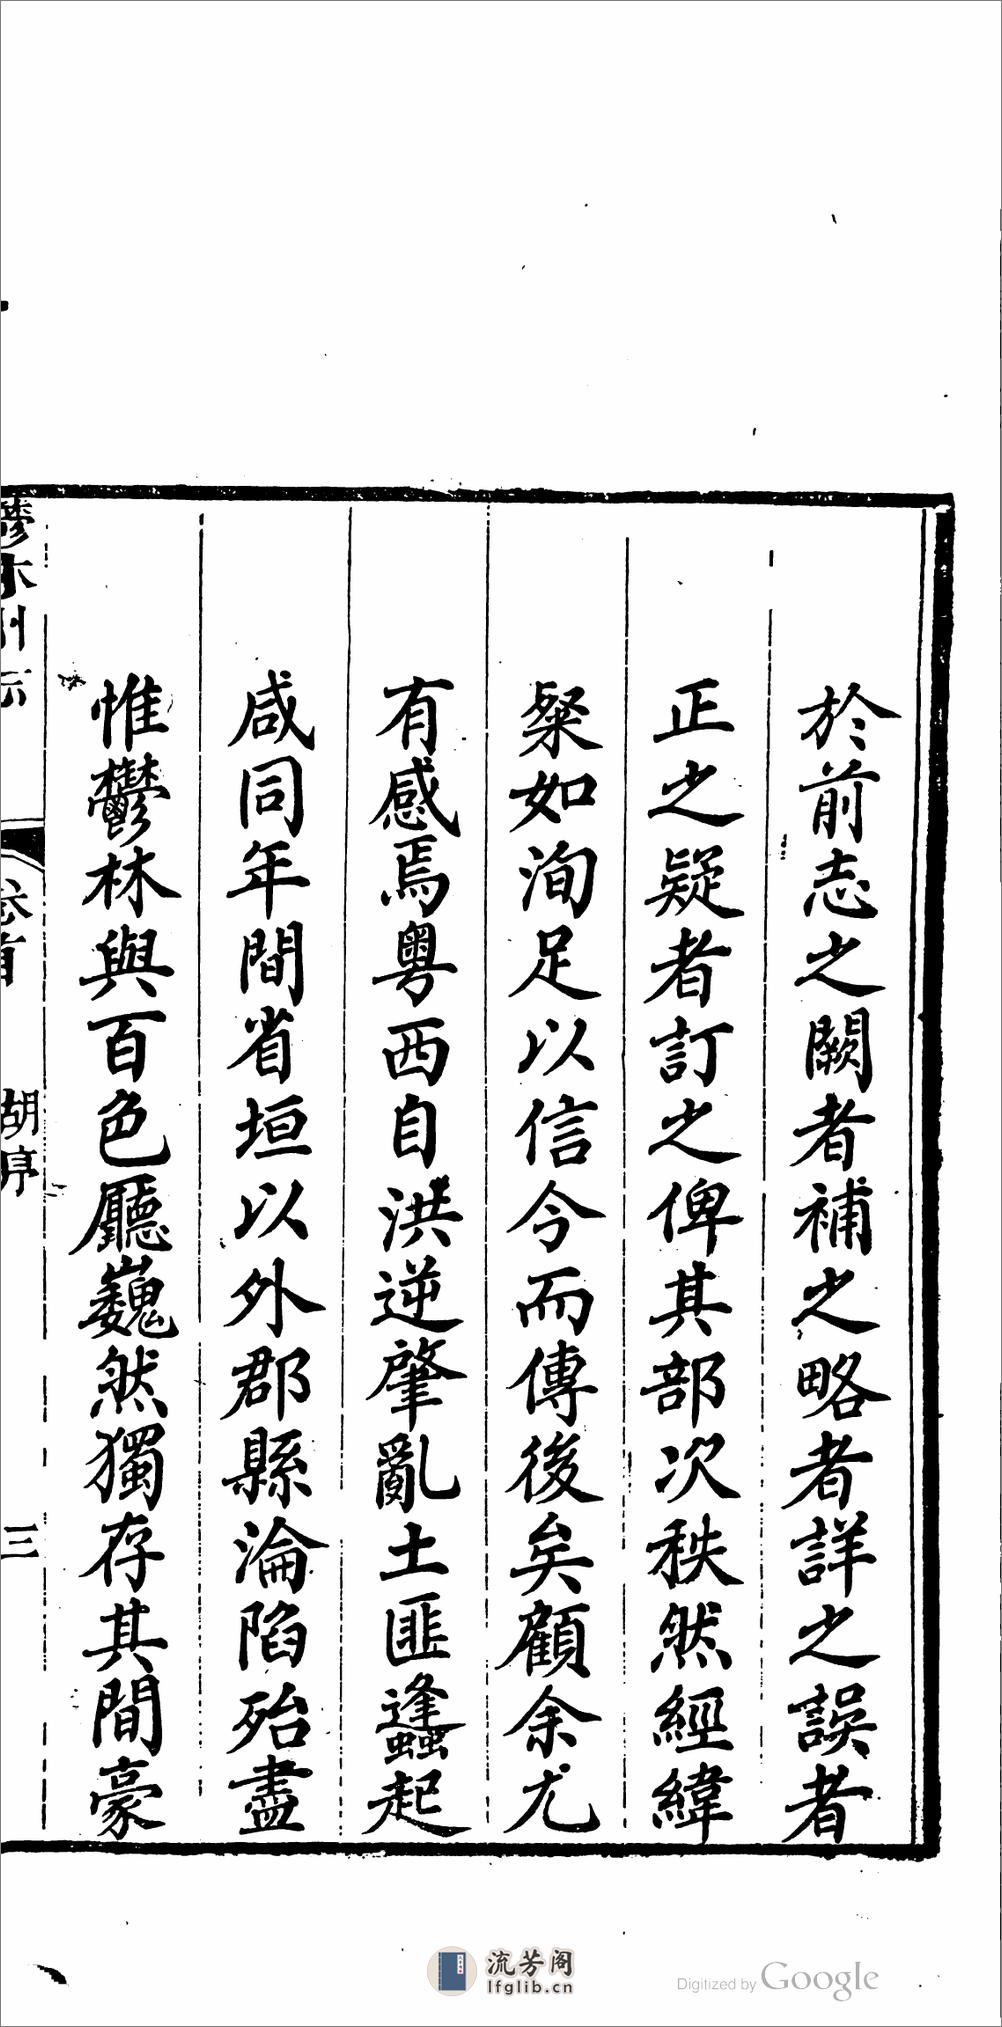 於前志之闕者補之略者詳之誤者
正之疑者訂之俾其部次秩然經緯
粲如洵足以信今而傳後矣顧余尤
有感焉粵西自洪逆肇亂土匪蠭起
咸同年間省垣以外郡縣淪陷殆盡
惟鬱林與百色廳巍然獨存其間豪
鬱林州志
卷首
胡序
三
流芳阁
lfglib.cn
Digitized by Google